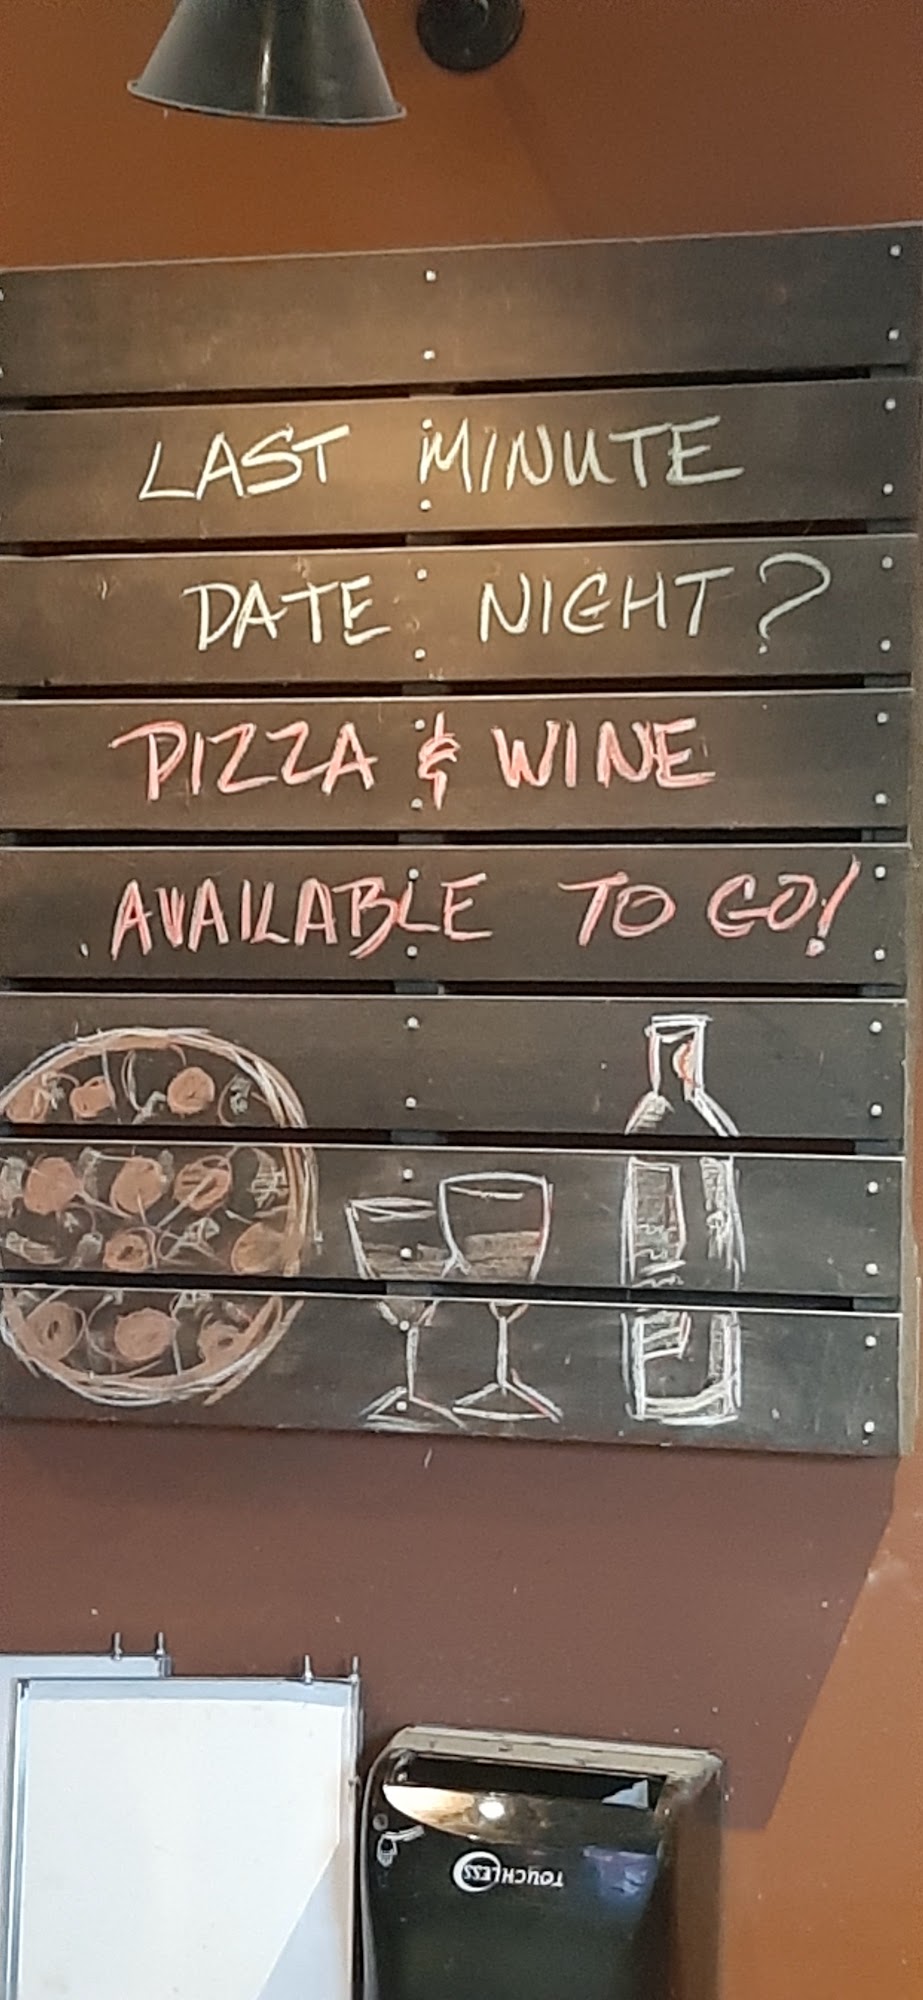 LAST MINUTE
DATE NIGHT?
PIZZA & WINE
AVAILABLE TO GO!
TOUCHLESS